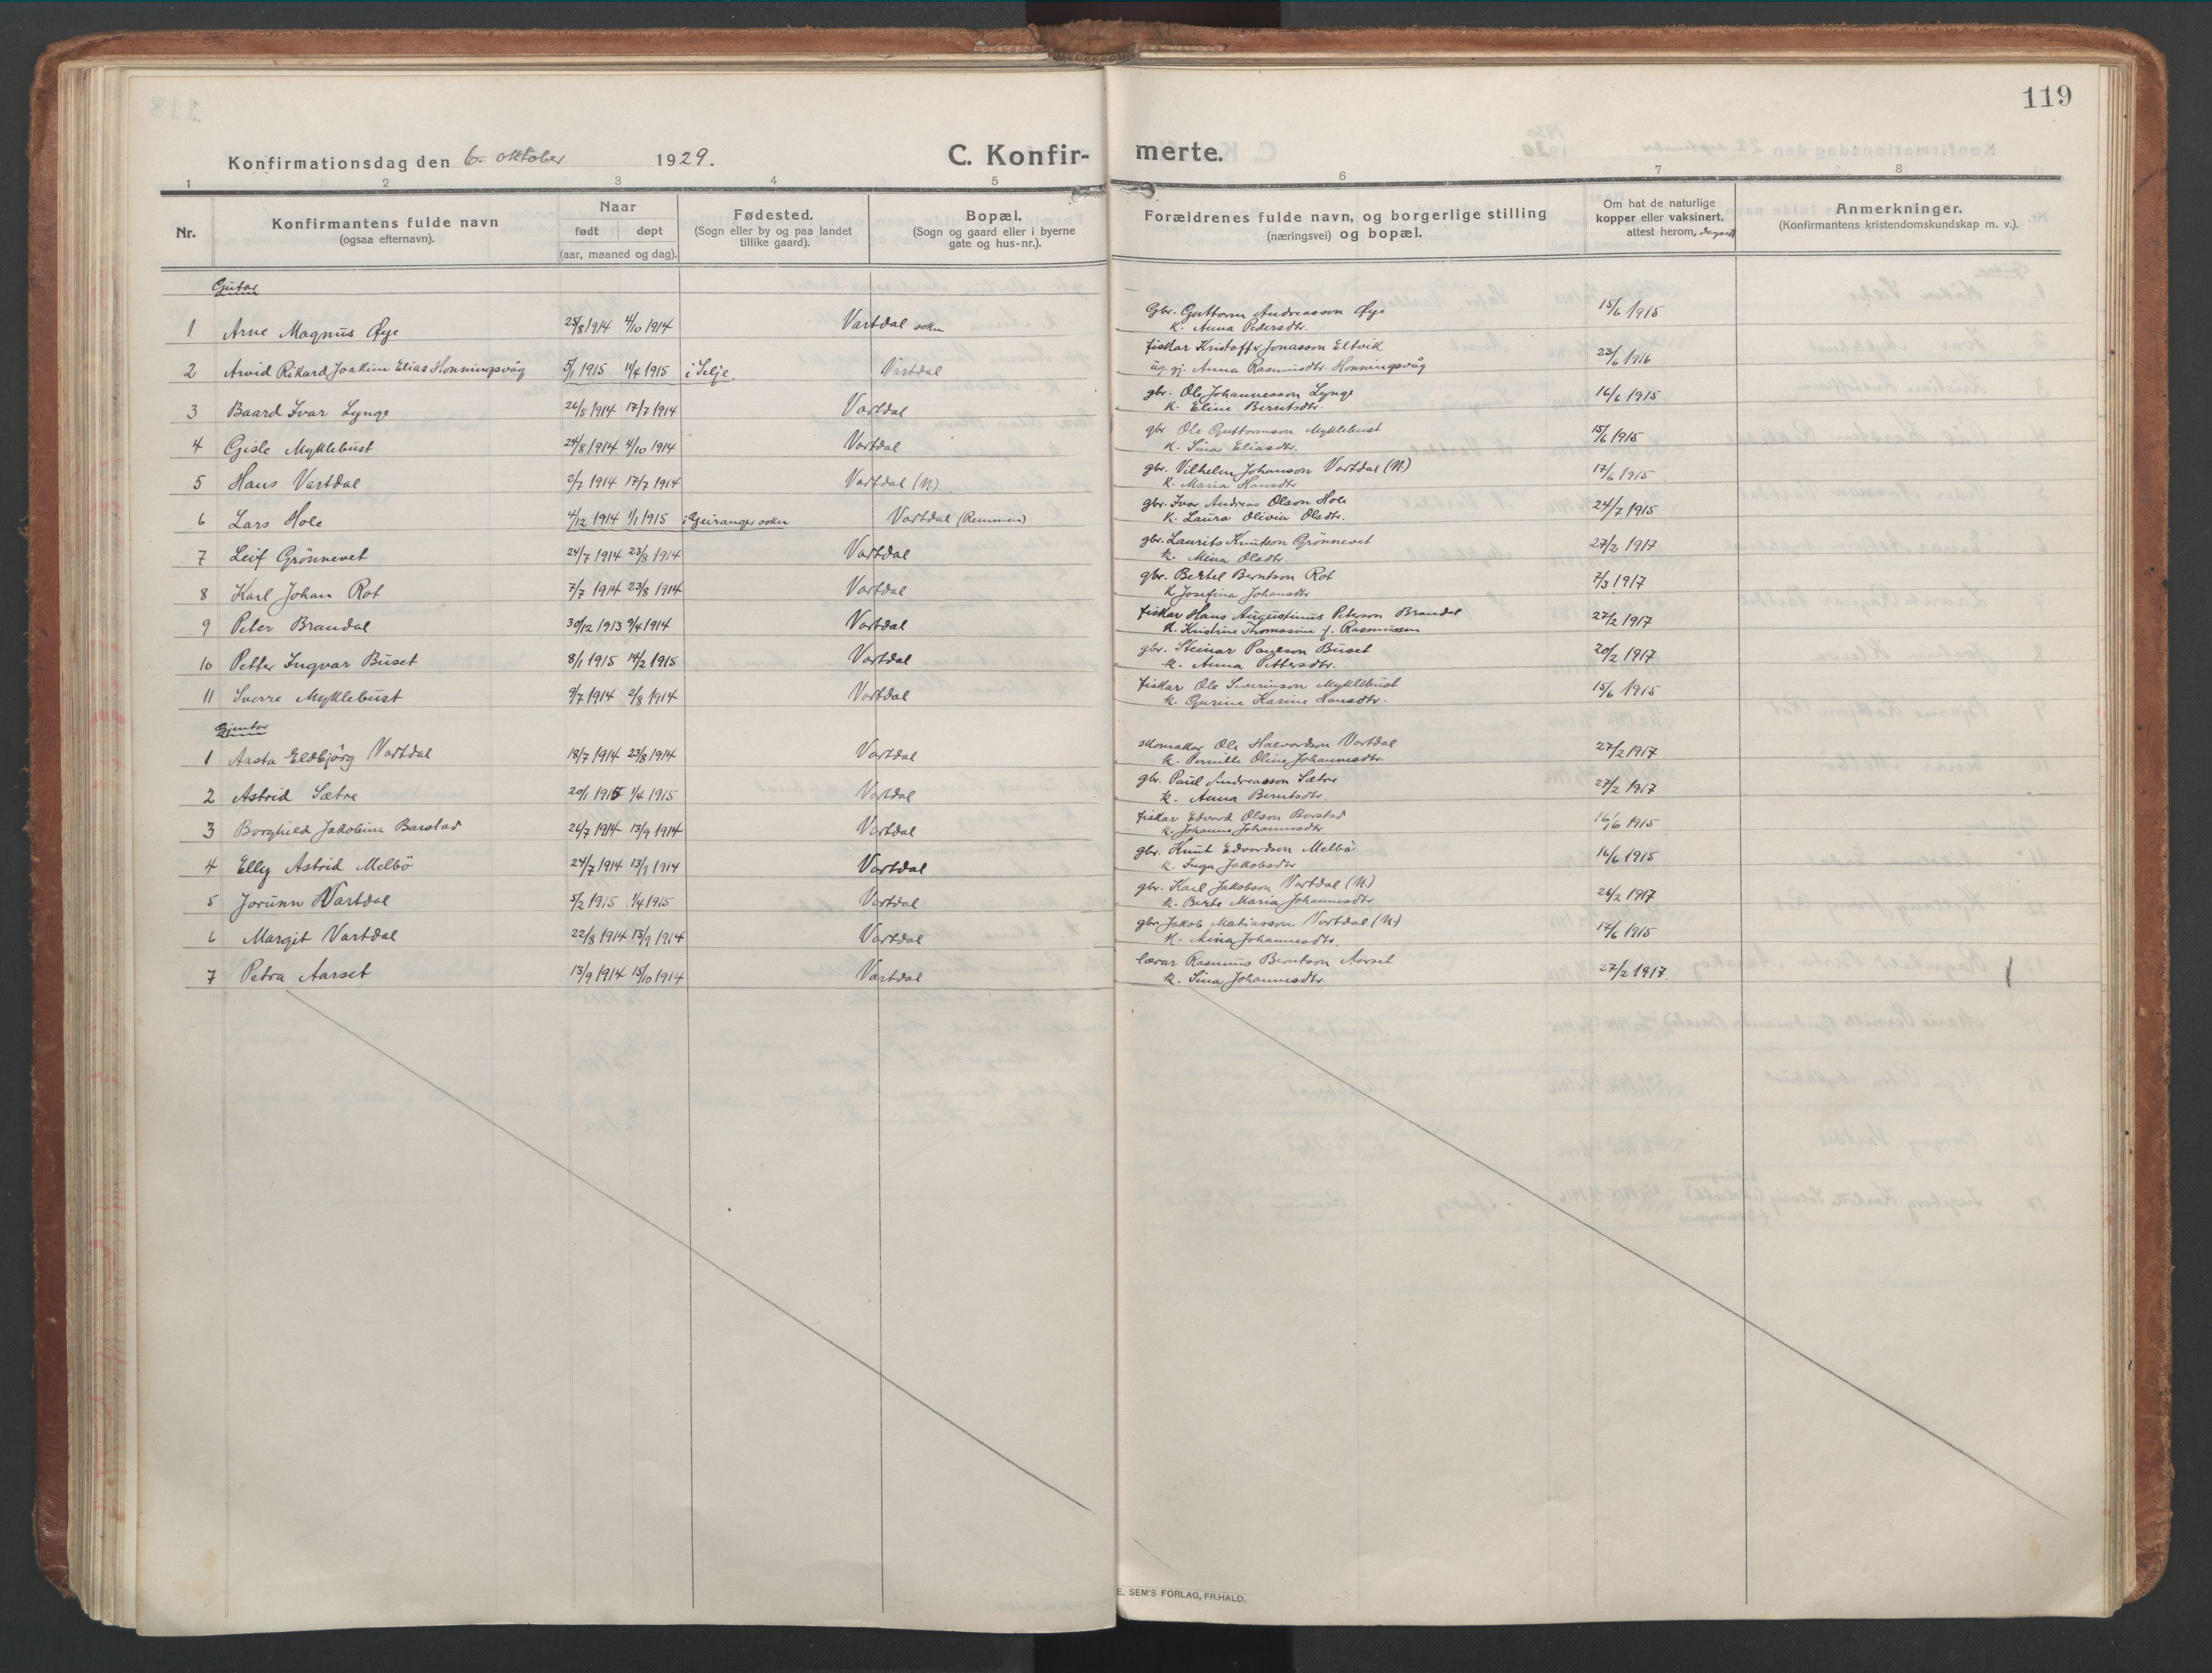 119
Konfirmationsdag den 6. oktober 1929. C. Konfir- merte.
1 2 3 4 5 6 7 8
Nr. Konfirmantens fulde navn (ogsaa efternavn). Naar født døpt (aar, maaned og dag). Fødested. (Sogn eller by og paa landet tillike gaard). Bopæl. (Sogn og gaard eller i byerne gate og hus-nr.). Forældrenes fulde navn, og borgerlige stilling (næringsvei) og bopæl. Om hat de naturlige kopper eller vaksinert, attest herom, Anmerkninger. (Konfirmantens kristendomskundskap m. v.).
Gutar
1 Arne Magnus Øye 25/8 1914 4/10 1914 Vartdal sokn Gbr. Guttorm Andreasson Øye 15/6 1915
k. Anna Pedersdtr.
2 Arvid Rikard Joakim Elias Honningsvåg 5/1 1915 11/4 1915 i Selje. Vartdal fiskar Kristoffer Jonasson Eltvik 23/6 1916
ug. gj. Anna Rasmusdtr. Honningsvåg
3 Baard Ivar Lynge 26/5 1914 17/7 1914 Vartdal gbr. Ole Johannesson Lynge 16/6 1915
k. Eline Berntsdtr.
4 Gisle Myklebust 24/8 1914 4/10 1914 Vartdal gbr Ole Guttormson Myklebust 15/6 1915
k. Sina Eliasdtr.
5 Hans Vartdal 2/7 1914 17/7 1914 Vartdal (N). gbr. Vilhelm Johanson Vartdal (N.) 17/6 1915
k. Maria Hansdtr.
6 Lars Hole 4/12 1914 1/1 1915 i Geiranger sokn Vartdal (Remmen) gbr. Ivar Andreas Olson Hole 24/7 1915
k. Laura Olivia Olsdtr.
7 Leif Grönnevet 24/7 1914 23/8 1914 Vartdal gbr. Laurits Knutson Grönnevet 27/2 1917
k. Mina Olsdtr.
8 Karl Johan Rot 7/7 1914 23/8 1914 Vartdal gbr. Bertel Berntson Rot 7/3 1917
k Josefina Johansdtr
9 Peter Brandal 30/12 1913 9/4 1914 Vartdal fiskar Hans Augustinus Peterson Brandal 27/2 1917
k. Kristine Thomasine f. Rasmussen
10 Petter Ingvar Buset 8/1 1915 14/2 1915 Vartdal gbr. Steinar Paulson Buset 20/2 1917
k. Anna Pettersdtr.
11 Sverre Myklebust 9/7 1914 2/8 1914 Vartdal fiskar Ole Severinson Myklebust 15/6 1915
k. Gurine Karine Hansdtr.
Gjentor
1 Aasta Eldbjörg Vartdal 18/7 1914 23/8 1914 Vartdal skomakar Ole Halvordson Vartdal 27/2 1917
k. Pernille Oline Johannesdtr.
2 Astrid Sætre 20/1 1915 1/4 1915 Vartdal gbr. Paul Andreasson Sætre 27/2 1917
k. Anna Berntsdtr.
3 Borghild Jakobine Barstad 26/7 1914 13/9 1914 Vartdal fiskar Edvard Olson Barstad 16/6 1915
k. Johanne Johannesdtr
4 Elly Astrid Melbö 24/7 1914 13/9 1914 Vartdal gbr. Knut Edvardson Melbö 16/6 1915
k. Inga Jakobsdtr
5 Jorunn Vartdal 5/2 1915 1/4 1915 Vartdal gbr. Karl Jakobson Vartdal (N.) 26/2 1917
k. Berte Maria Johannesdtr
6 Margit Vartdal 22/8 1914 13/9 1914 Vartdal gbr Jakob Matiasson Vartdal (N.) 17/6 1915
k. Nina Johannesdtr.
7 Petra Aarset 13/9 1914 15/10 1914 Vartdal lærar Rasmus Berntson Aarset 27/2 1917.
k. Sina Johannesdtr.
E. SEM'S FORLAG, FR.HALD.